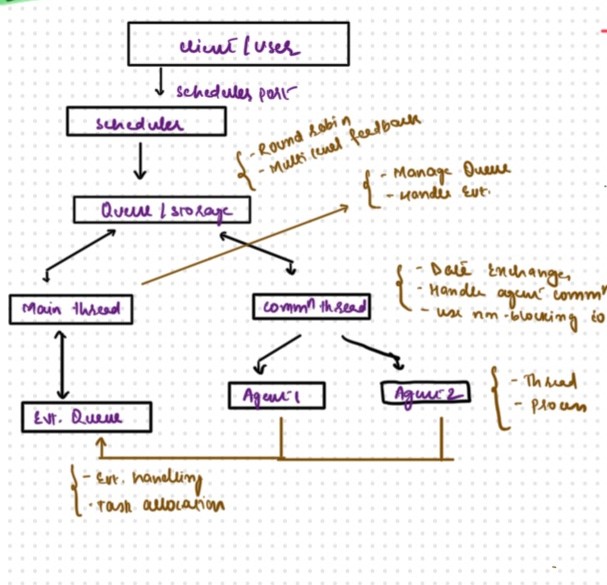 client / user
schedules post
scheduler
- Round robin
- Multi level feedback
Queue / storage
- Manage Queue
- Handle Evt.
Main thread
commⁿ thread
- Data Exchange,
- Handle agent commⁿ
- use nm-blocking io
Agent 1
Agent 2
- Thread
- Process
Evt. Queue
- Evt. handling
- Task allocation